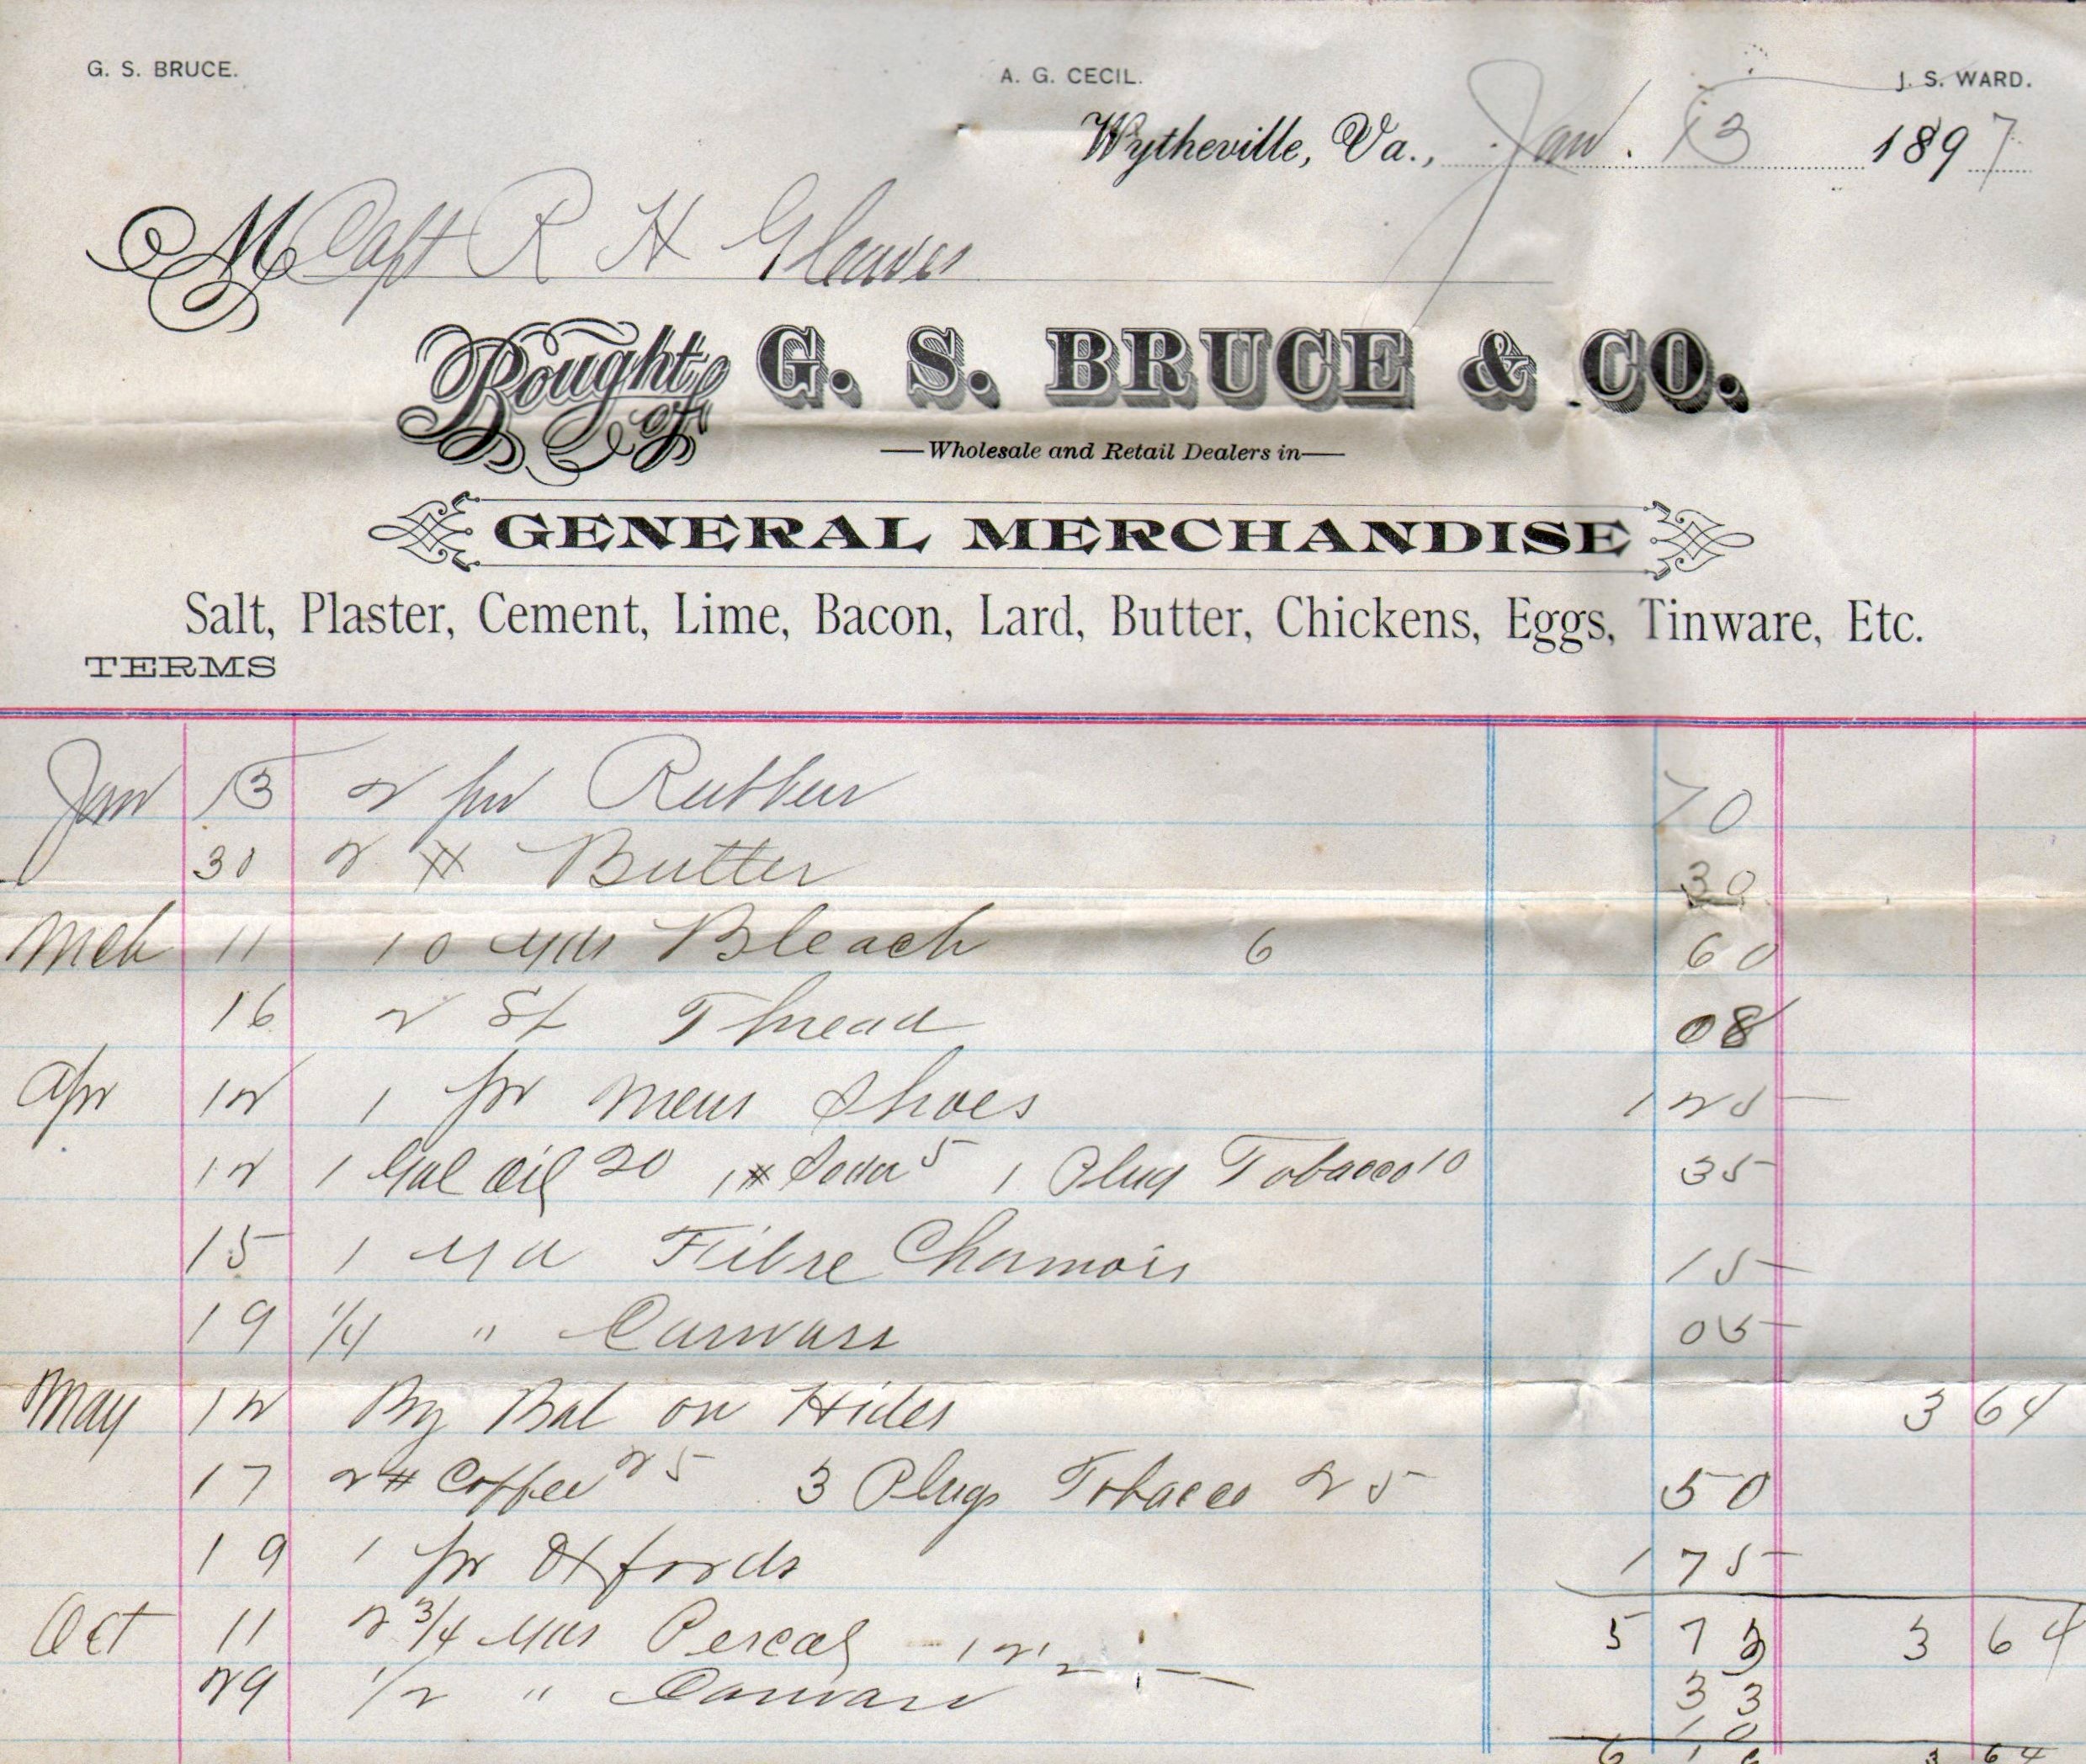 G. S. BRUCE. A. G. CECIL. J. S. WARD.
Wytheville, Va., Jan. 13 1897
M Capt R H Gleaves
Bought of G. S. BRUCE & CO.
Wholesale and Retail Dealers in
GENERAL MERCHANDISE
Salt, Plaster, Cement, Lime, Bacon, Lard, Butter, Chickens, Eggs, Tinware, Etc.
TERMS
Jan 13 2 pr Rubbers 70
30 2 # Butter 30
Mch 11 10 yds Bleach 6 60
16 2 Thread 08
Apr 12 1 pr Mens Shoes 1 25
12 1 Gal Oil 20 1 # Soda 5 1 Plug Tobacco 10 35
15 1 yd Fibre Chamois 15
19 1/4 " Canvass 05
May 12 By Bal on Hides 3 64
17 2 # Coffee 25 3 Plugs Tobacco 25 50
19 1 pr Oxfords 1 75
5 73 3 64
Oct 11 2 3/4 yds Percal 12 1/2 33
29 1/2 " Canvass 10
6 1 6 3 64